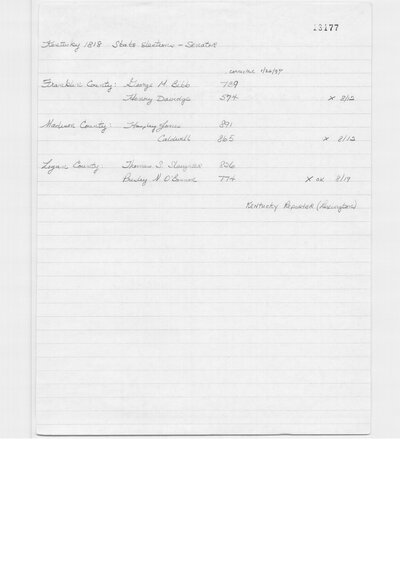 13177
Kentucky 1818 State Elections - Senator
corrected
Franklin County: George M. Bibb 789
Henry Davidge 574 x 8/12
Madison County: Humphrey Jones 891
Caldwell 865 x 8/12
Logan County: Thomas S. Slaughter 826
Presley N. O'Bannon 774 X ok 8/19
Kentucky Reporter (Lexington)